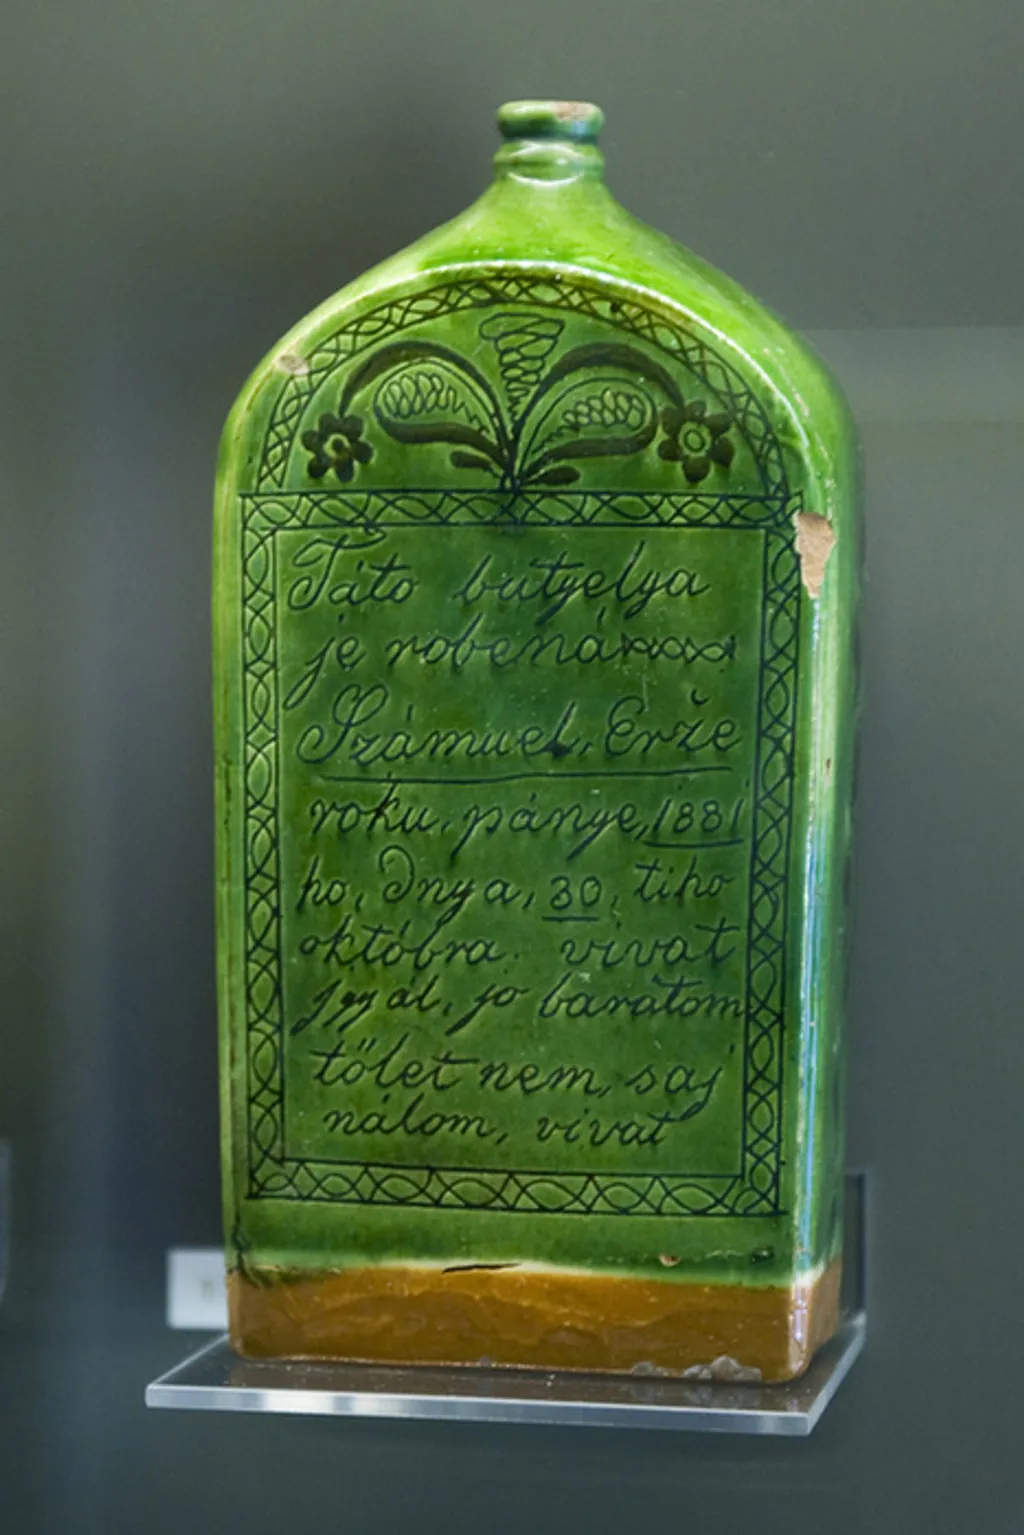 Táto butyelya
je robená
Számuel, Erže
roku, pánye, 1881
ho, Dnya, 30, tiho
októbra. vivat
jgyál, jo barátom
tőlet nem, saj
nálom, vivat